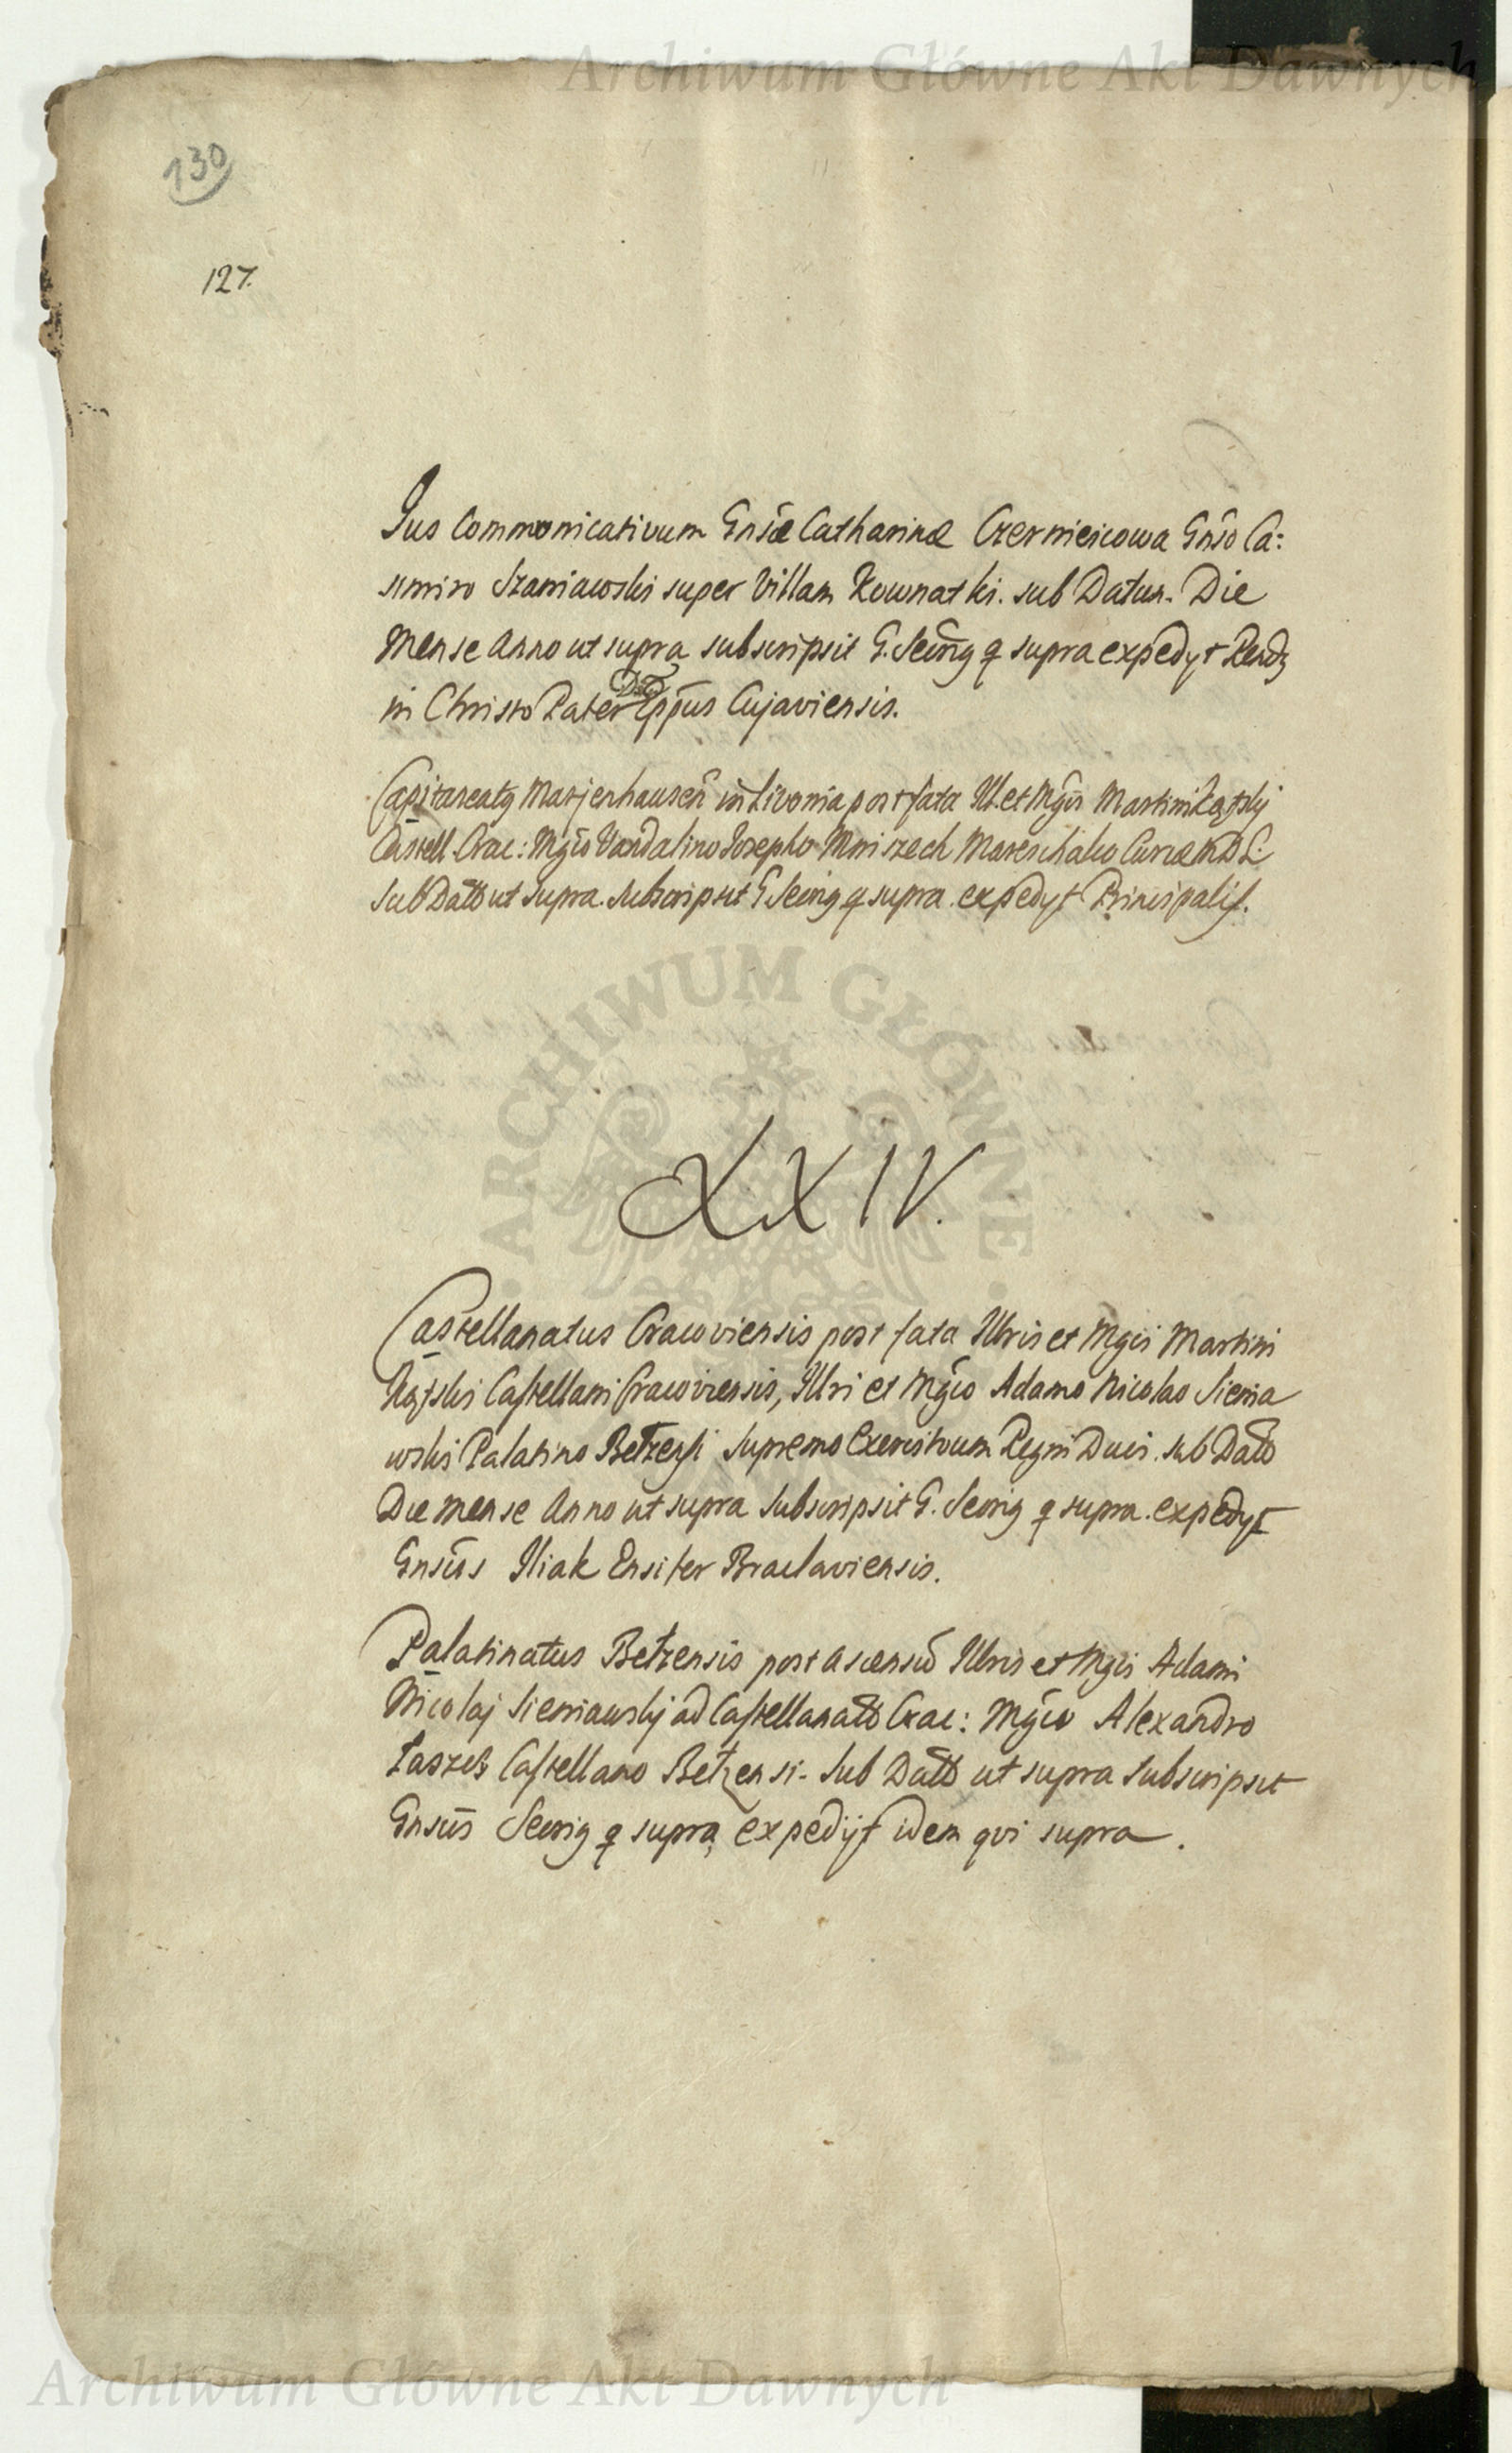 Archiwum Główne Akt Dawnych
130
127.
Jus Communicativum Gnsæ Catharinæ Czerniejcowa Gnso Ca:
simiro Szaniawski super Villam Kownatki. sub Datum. Die
Mense Anno ut supra subscripsit G. Secrius q supra expedyt Rendg
in Christo Pater Dnus Eppus Cujaviensis.
Capitaneatg Marjenhausen in Livonia post fata Ill. et Mgci Martini Kątskj
Castell. Crac: Mgco Vandalino Josepho Mniszech Mareschalco Curiæ M D L.
Sub Datto ut supra. subscripsit G Secrig q supra. expedyt Principalis.
ARCHIWUM GŁÓWNE
XXIV.
Castellanatus Cracoviensis post fata Illris et Mgci Martini
Kątski Castellani Cracoviensis, Illri et Mgco Adamo Nicolao Sienia
wski Palatino Bełzensi Supremo Exercituum Regni Duci. Sub Datto
Die mense Anno ut supra Subscripsit G. Secrig q supra. expedyt
Gnsus Iliak Ensifer Braclaviensis.
Palatinatus Bełzensis post ascensu Illris et Mgci Adami
Nicolaj Sieniawskj ad Castellanatt Crac: Mgco Alexandro
Łaszcz Castellano Bełzensi. Sub Datto ut supra Subscripsit
Gnsus Secrig q supra expedijt idem qvi supra.
Archiwum Główne Akt Dawnych